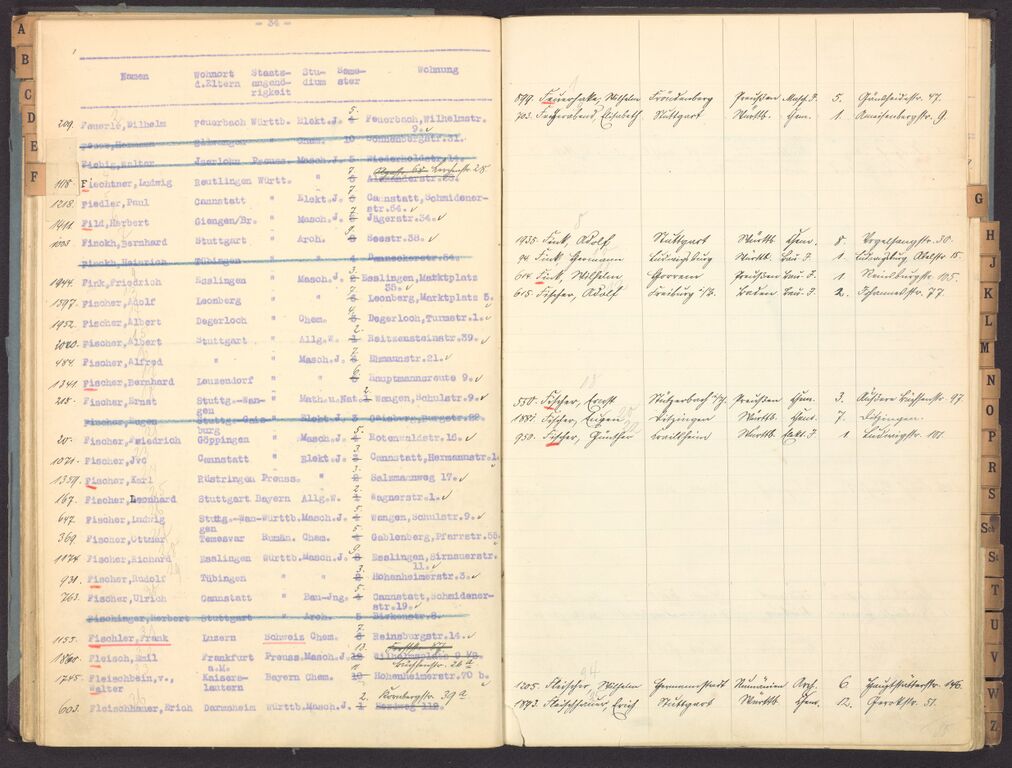 - 34 -
Namen Wohnort d.Eltern Staats-angehö-rigkeit Stu-dium Seme-ster Wohnung
209. Feuerle,Wilhelm Feuerbach Württb. Elekt.J. 5. Feuerbach,Wilhelmstr.
9.
Chem. 10 Sonnenbergstr.31.
Fiebig,Walter Iserlohn Preuss. Masch.J. 5 Wiederholdstr.14.
1118. Fiechtner,Ludwig Reutlingen Württ. " 7.
1218. Fiedler,Paul Cannstatt " Elekt.J. 7. Cannstatt,Schmidener-
str.54.
1411. Fild,Herbert Giengen/Br. " Masch.J. 7. Jägerstr.34.
Finckh,Bernhard Stuttgart " Arch. 9. Seestr.38.
Finckh,Heinrich Tübingen " " 4 Danneckerstr.34.
1944. Fink,Friedrich Esslingen " Masch.J. 3. Esslingen,Marktplatz
1597. Fischer,Adolf Leonberg " " 7. Leonberg,Marktplatz 5.
1952. Fischer,Albert Degerloch " Chem. 4. Degerloch,Turmstr.1.
2020. Fischer,Albert Stuttgart " Allg.W. 2. Reitzensteinstr.39.
484. Fischer,Alfred " " Masch.J. Ehmannstr.21.
1341. Fischer,Bernhard Leuzendorf " " 6. Hauptmannsreute 9.
218. Fischer,Ernst Stuttg.-Wan-gen " Math.u.Nat. 2. Wangen,Schulstr.9.
Fischer,Eugen Stuttg.-Gais-burg " Elekt.J. 3 Gaisburg,Burgstr.22.
20. Fischer,Friedrich Göppingen " Masch.J. 5. Rotenwaldstr.16.
1071. Fischer,Jvo Cannstatt " Elekt.J. 3. Cannstatt,Hermannstr.1.
1359. Fischer,Karl Rüstringen Preuss. " 3. Salzmannweg 17.
167. Fischer,Leonhard Stuttgart Bayern Allg.W. 2. Wagnerstr.1.
647. Fischer,Ludwig Stuttg.-Wan-gen Württb. Masch.J. 5. Wangen,Schulstr.9.
369. Fischer,Ottmar Temesvar Rumän. Chem. 5. Gablenberg,Pfarrstr.55
1174. Fischer,Richard Esslingen Württb. Masch.J. 9. Esslingen,Sirnauerstr.
11.
931. Fischer,Rudolf Tübingen " " 3. Hohenheimerstr.3.
763. Fischer,Ulrich Cannstatt " Bau-Jng. 5. Cannstatt,Schmidener-
str.19.
Fischinger,Herbert Stuttgart " Arch. 5 Birkenstr.8.
1153. Fischler,Frank Luzern Schweiz Chem. 7. Reinsburgstr.14.
Fleisch,Emil Frankfurt a.M. Preuss. Masch.J. 13. Büchsenstr. 26a
1745. Fleischbein,v., Walter Kaisers-lautern Bayern Chem. 11. Hohenheimerstr.70 b.
603. Fleischhauer,Erich Darmsheim Württb. Masch.J. 2. Nürnbergstr. 39a
899. Feuerhake, Wilhelm Fröndenberg Preußen Masch. J. 5. Gänsheidestr. 47.
703. Feyerabend, Elisabeth Stuttgart Württb. Chem. 1. Ameisenbergstr. 9.
1935. Fink, Adolf Stuttgart Württb. Chem. 8. Vogelsangstr. 30.
94. Fink, Hermann Ludwigsburg Württb. Bau-J. 1
614. Fink, Wilhelm Preußen Bau-J. 1 Reinsburgstr. 105.
615. Fischer, Adolf Freiburg i/B. Baden Bau-J. 2. Johannesstr. 77.
550. Fischer, Ernst Preußen Chem. 3.
Fischer, Eugen Ditzingen Württb. Chem. 7. Ditzingen.
950. Fischer, Günther Crailsheim Württb. Elekt. J. 1 Ludwigstr. 101.
1205. Fleischer, Wilhelm Hermannstadt Rumänien Arch. 6. Hauptstätterstr. 146.
1893. Fleischhauer, Erich Stuttgart Württb. Chem. 12. Gerokstr. 51.
A
B
C
D
E
F
G
H
J
K
L
M
N
O
P
R
S
Sch
St
T
U
V
W
Z